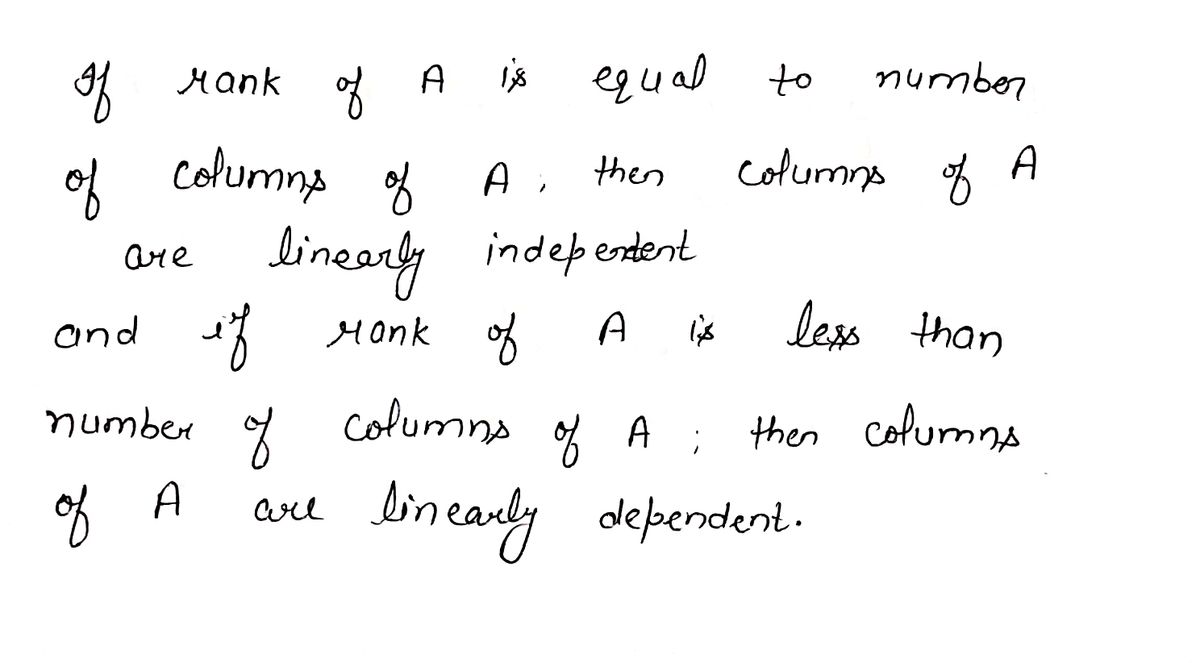 If rank of A is equal to number
of columns of A, then columns of A
are linearly independent
and if rank of A is less than
number of columns of A; then columns
of A are linearly dependent.